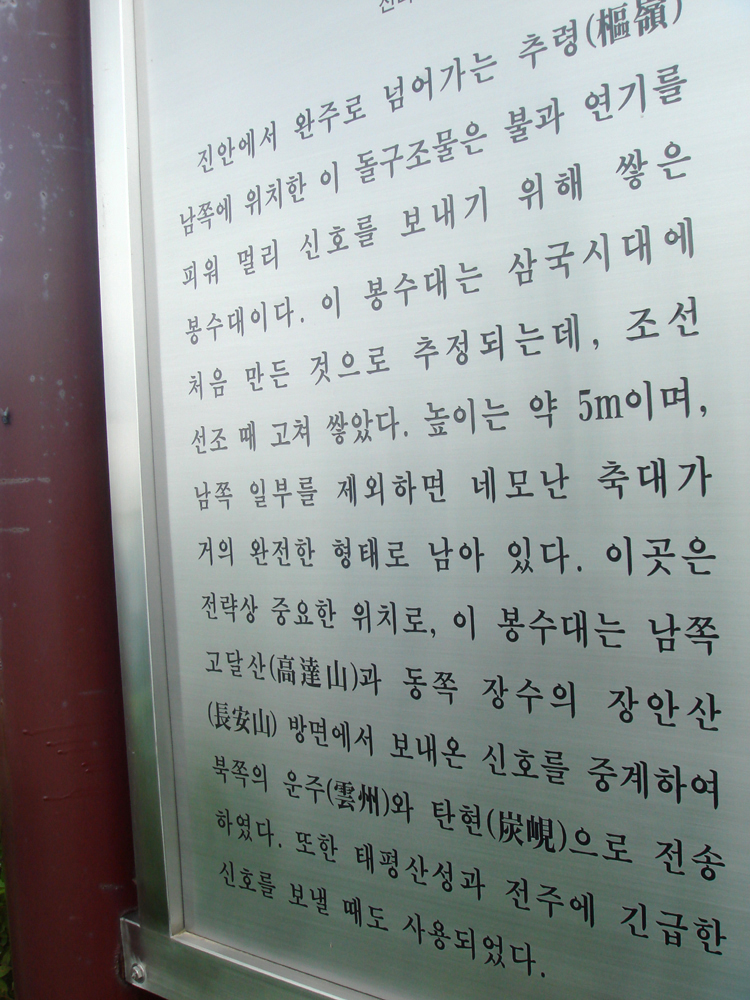 진안에서 완주로 넘어가는 추령(樞嶺)
남쪽에 위치한 이 돌구조물은 불과 연기를
피워 멀리 신호를 보내기 위해 쌓은
봉수대이다. 이 봉수대는 삼국시대에
처음 만든 것으로 추정되는데, 조선
선조 때 고쳐 쌓았다. 높이는 약 5m이며,
남쪽 일부를 제외하면 네모난 축대가
거의 완전한 형태로 남아 있다. 이곳은
전략상 중요한 위치로, 이 봉수대는 남쪽
고달산(高達山)과 동쪽 장수의 장안산
(長安山) 방면에서 보내온 신호를 중계하여
북쪽의 운주(雲州)와 탄현(炭峴)으로 전송
하였다. 또한 태평산성과 전주에 긴급한
신호를 보낼 때도 사용되었다.